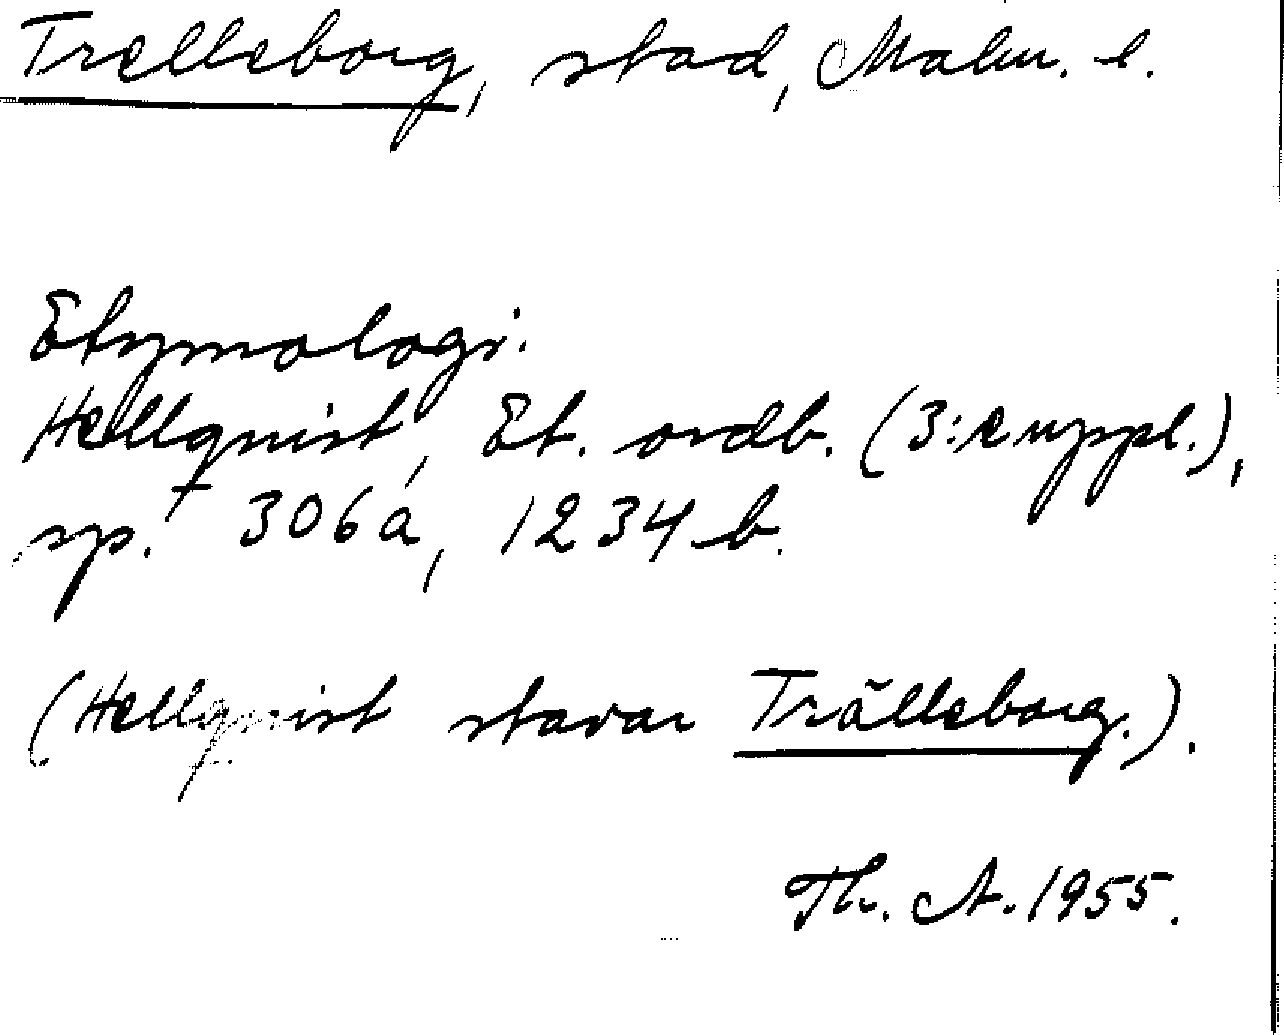 Trelleborg, stad, Malm. l.
Etymologi.
Hellquist, Et. ordb. (3:e uppl.),
sp. 306 a, 1234 b.
(Hellquist stavar Trälleborg.).
Th. A. 1955.